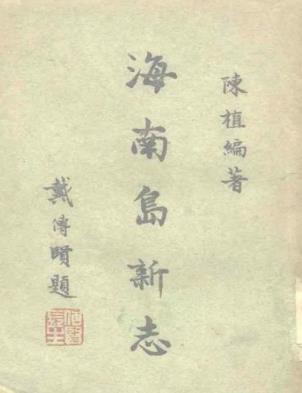 陳植編著
海南島新志
戴傳賢題